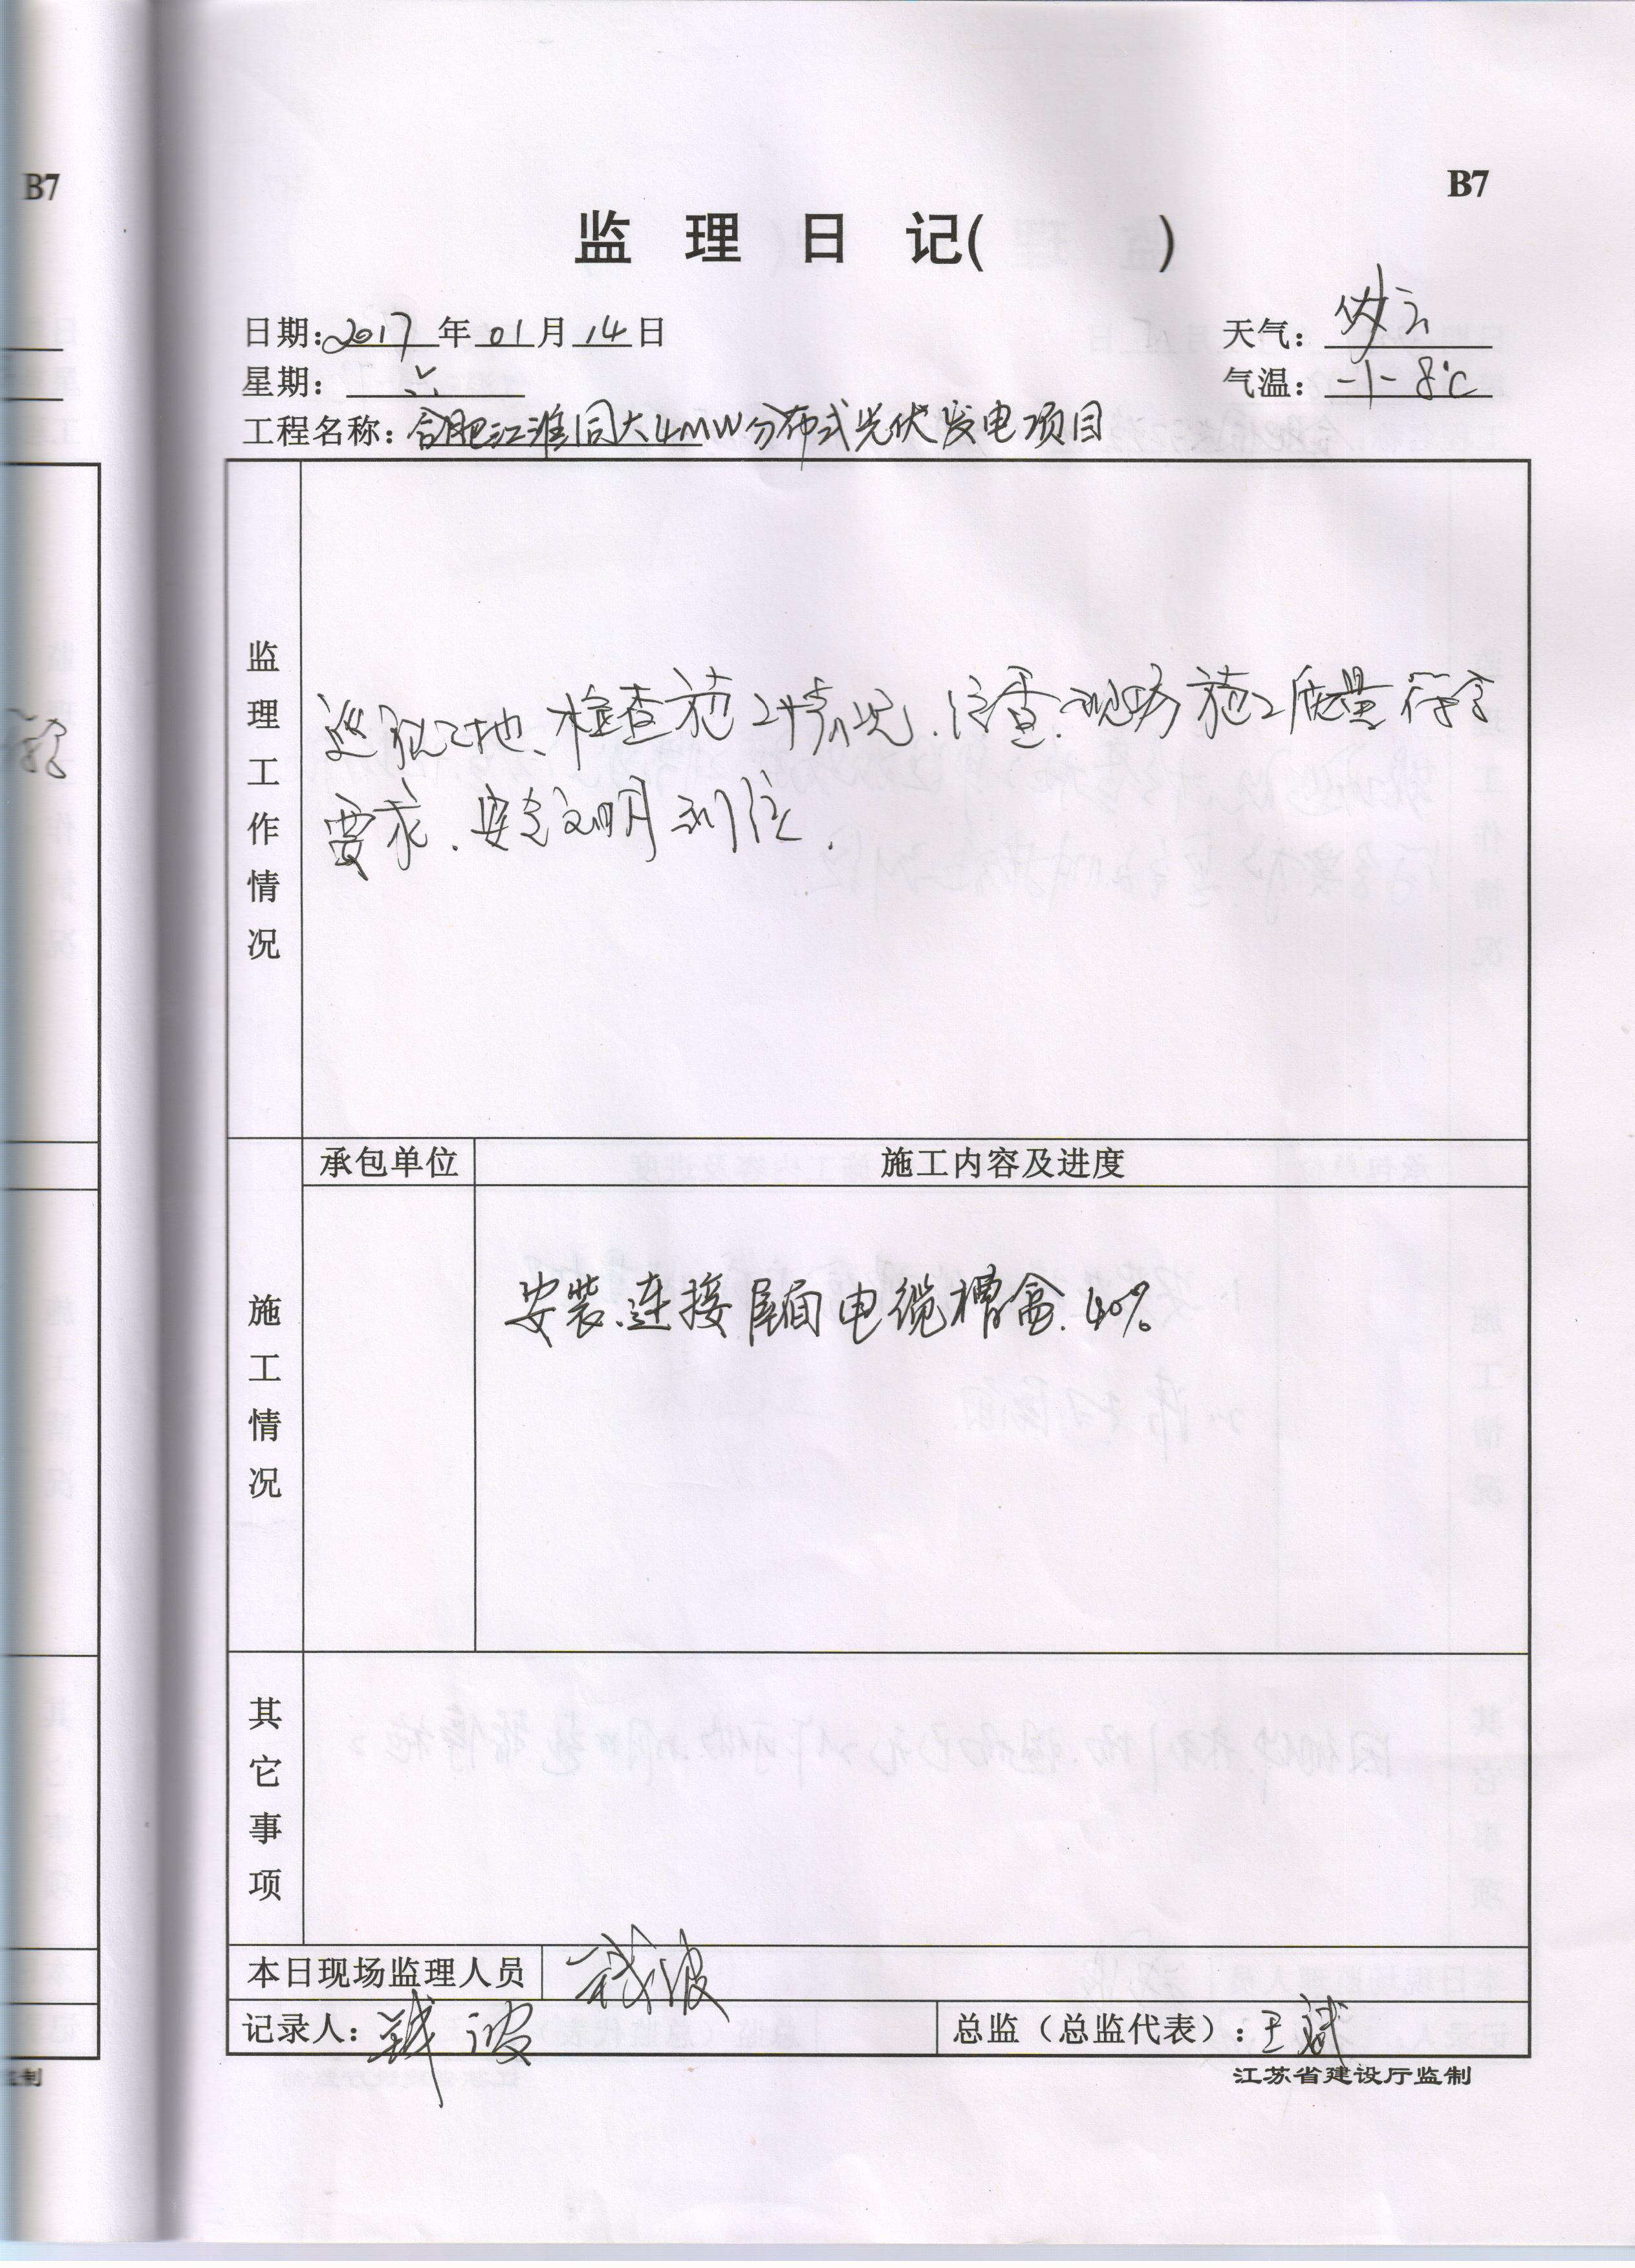 B7
B7
监理日记( )
日期:2017年01月14日
天气:
星期:六
气温:-1-8℃
工程名称:合肥江淮同大4MW分布式光伏发电项目
监理工作情况
巡视工地、检查施工情况.经查.现场施工质量符合
要求.安全文明到位.
承包单位
施工内容及进度
施工情况
安装.连接屋面电缆槽盒.40%
其它事项
本日现场监理人员
钱波
记录人:钱波
总监(总监代表):王斌
江苏省建设厅监制
监制